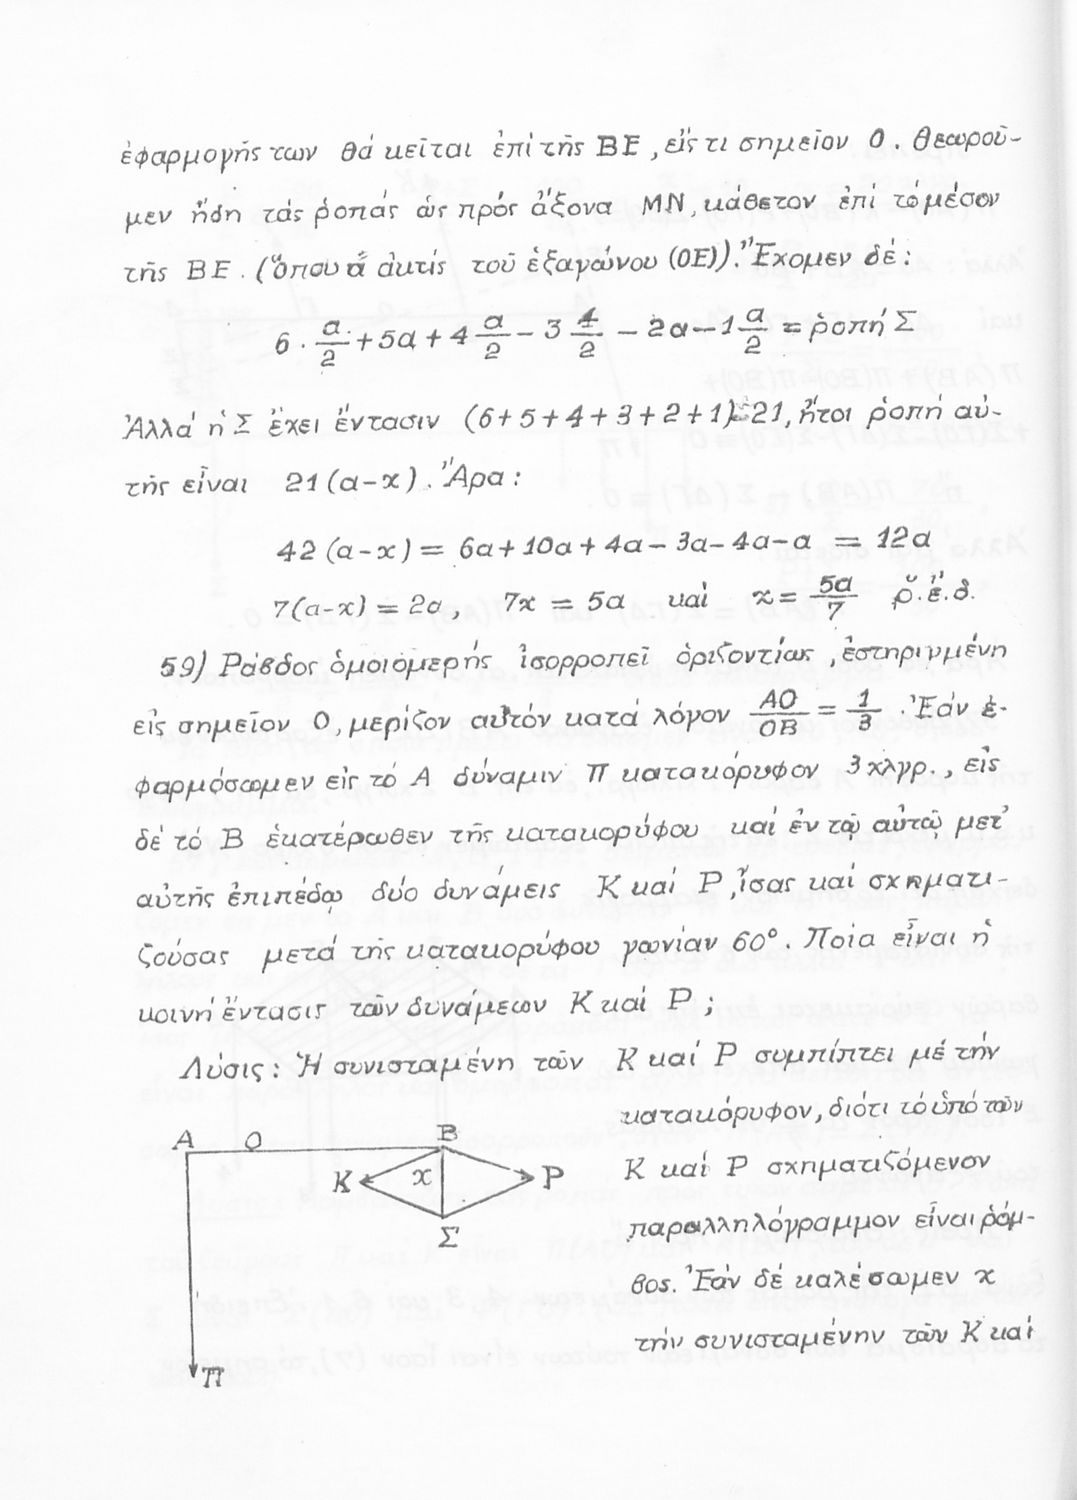 ἐφαρμογῆς των θά κεῖται ἐπί τῆς ΒΕ, εἴς τι σημεῖον Ο. Θεωροῦ-
μεν ἤδη τάς ῥοπάς ὡς πρός ἄξονα ΜΝ, κάθετον ἐπί τό μέσον
τῆς ΒΕ. (ὅπου ἁ ἀκτίς τοῦ ἑξαγώνου (ΟΕ)). Ἔχομεν δέ:
6 · α/2 + 5α + 4 α/2 – 3 4/2 – 2α – 1 α/2 = ῥοπή Σ
Ἀλλά ἡ Σ ἔχει ἔντασιν (6+5+4+3+2+1)=21, ἤτοι ῥοπή αὐ-
τῆς εἶναι 21(α-x). Ἄρα:
42(α-x) = 6α+10α+4α–3α–4α–α = 12α
7(α-x) = 2α, 7x = 5α καί x = 5α/7 ὅ.ἔ.δ.
59) Ράβδος ὁμοιομερής ἰσορροπεῖ ὁριζοντίως, ἐστηριγμένη
εἰς σημεῖον Ο, μερίζον αὐτόν κατά λόγον ΑΟ/ΟΒ = 1/3. Ἐάν ἐ-
φαρμόσωμεν εἰς τό Α δύναμιν Π κατακόρυφον 3 χλγρ., εἰς
δέ τό Β ἑκατέρωθεν τῆς κατακορύφου καί ἐν τῷ αὐτῷ μετ'
αὐτῆς ἐπιπέδῳ δύο δυνάμεις Κ καί Ρ, ἴσας καί σχηματι-
ζούσας μετά τῆς κατακορύφου γωνίαν 60°. Ποία εἶναι ἡ
κοινή ἔντασις τῶν δυνάμεων Κ καί Ρ;
Λύσις: Ἡ συνισταμένη τῶν Κ καί Ρ συμπίπτει μέ τήν
κατακόρυφον, διότι τό ὑπό τῶν
Κ καί Ρ σχηματιζόμενον
παραλληλόγραμμον εἶναι ῥόμ-
βος. Ἐάν δέ καλέσωμεν x
τήν συνισταμένην τῶν Κ καί
Α Ο Β
Κ x Ρ
Σ
Π